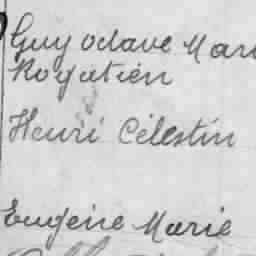 Guy Octave Mari
Rogatien
Henri Célestin
Eugène Marie